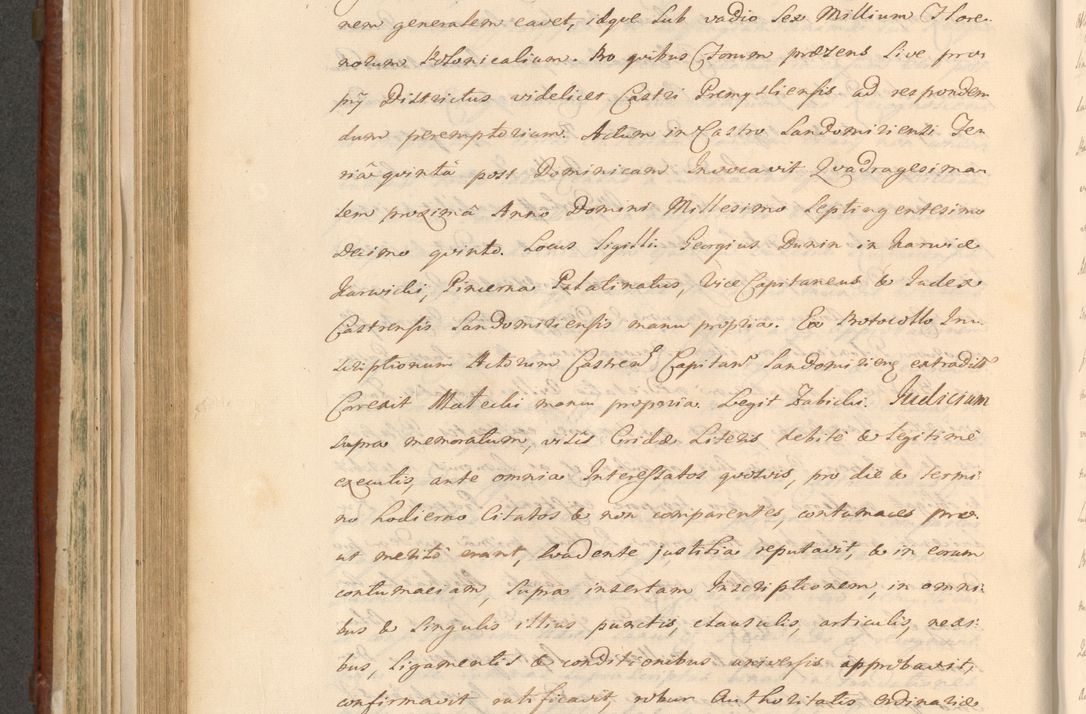 nem generalem cavet, idque sub vadio sex Millium Flore-
norum Polonicalium. Pro quibus Forum præsens sive pro-
prÿ Districtus videlicet Castri Premysliensis ad responden
dum peremptorium. Actum in Castro Sandomiriensi Fe-
riâ quintâ post Dominicam Invocavit Quadragesima-
lem proximâ Anno Domini Millesimo Septingentesimo
decimo quinto. Locus Sigilli. Georgius Dunin in Karwice
Karwicki, Pincerna Palatinatus, Vice Capitaneus & Judex
Castrensis Sandomiriensis manu propria. Ex Protocollo In-
scriptionum Actorum Castren Capitan Sandomirien extradit
Correxit Malecki manu propria. Legit Zabicki. Judicium
supra memoratum, visis Cridæ Literis debitè & legitimè
executis, ante omnia Interessatos quosvis, pro die & termi-
no hodierno Citatos & non comparentes, contumaces pro-
ut meritò erant, suadente justitia reputavit, & in eorum
contumaciam, supra insertam Inscriptionem, in omni-
bus & singulis illius punctis, clausulis, articulis, nexi-
bus, ligamentis & conditionibus universis approbavit,
confirmavit ratificavit, robur Authoritatis Ordinariæ